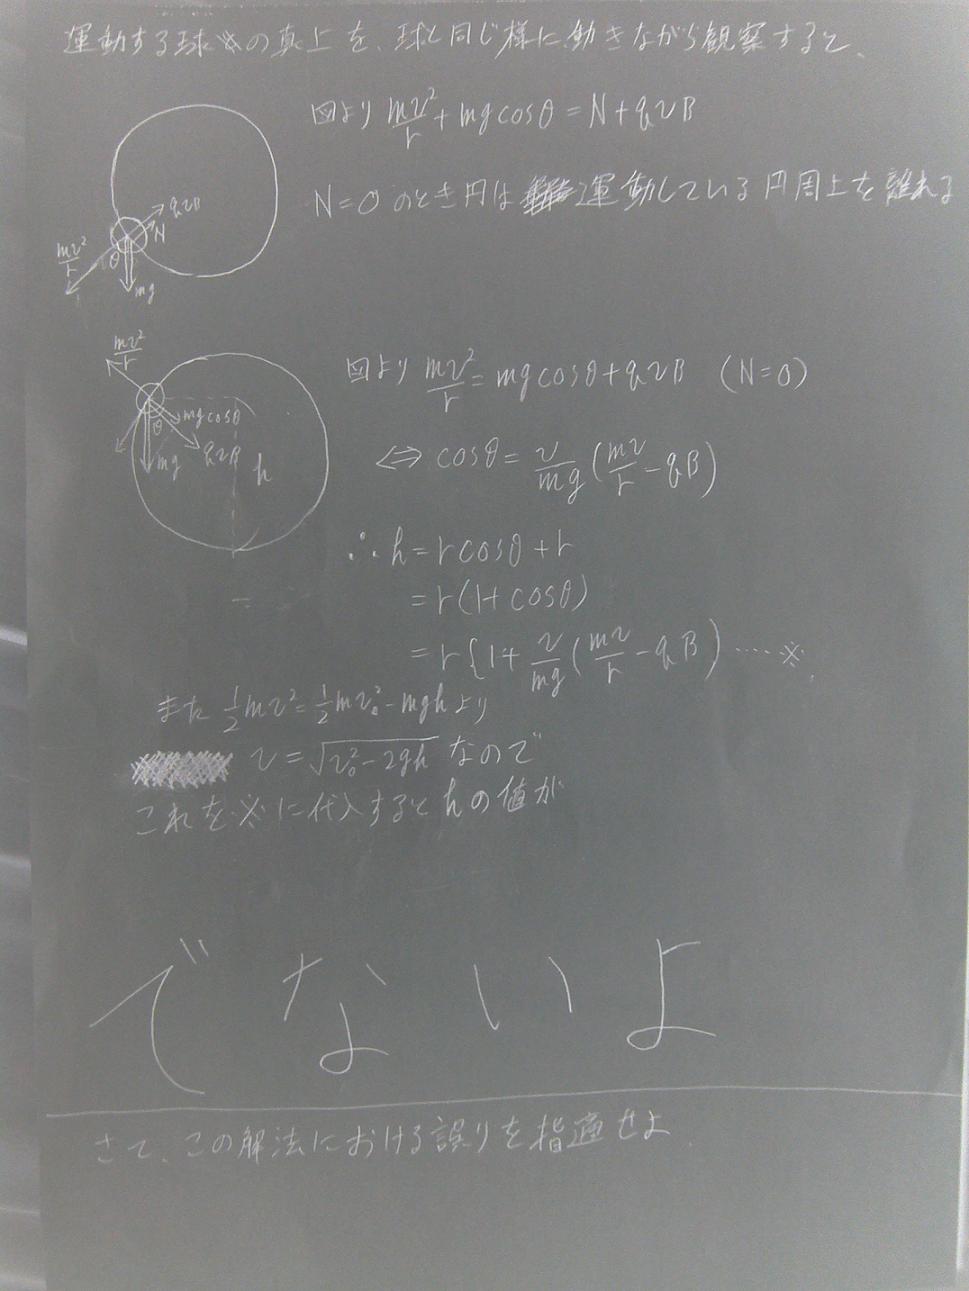 運動する球の真上を、球と同じ様に動きながら観察すると、
図より mv²/r + mg cosθ = N + qvB
N=0 のとき円は運動している円周上を離れる
qvB
N
mv²/r
θ
mg
mv²/r
図より mv²/r = mg cosθ + qvB (N=0)
mg cosθ
θ
mg
qvB
h
⇔ cosθ = v/mg (mv/r - qB)
∴ h = r cosθ + r
= r(1 + cosθ)
= r{1 + v/mg (mv/r - qB) ・・・・※
また 1/2 mv² = 1/2 mv₀² - mgh より
v = √(v₀² - 2gh) なので
これを※に代入すると h の値が
でないよ
さて、この解法における誤りを指適せよ.